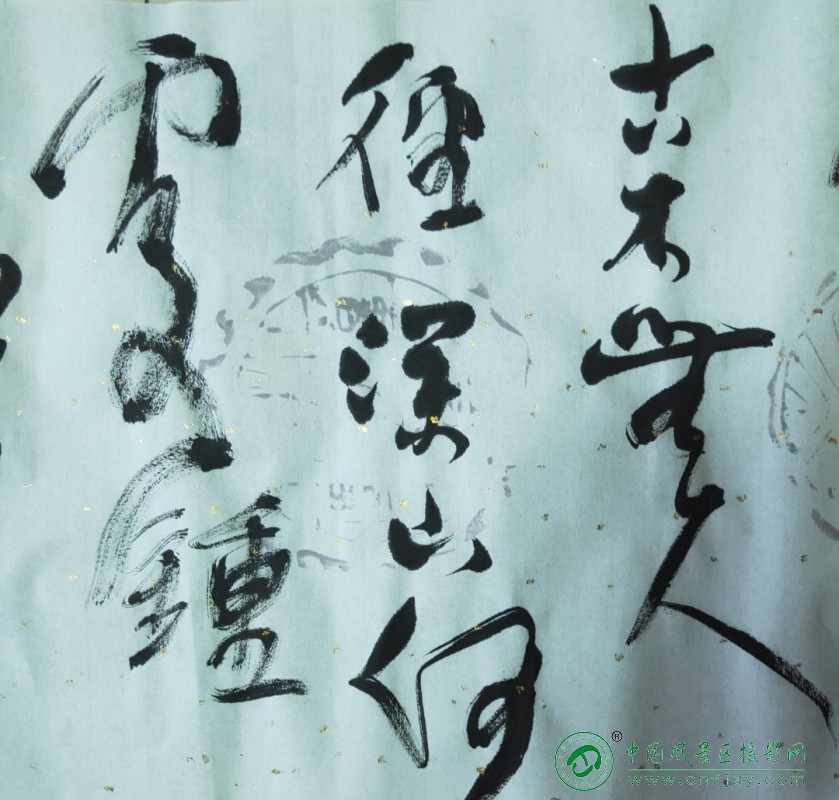 古木無人
徑深山何
處鐘
中国风景区摄影网
www.cnfjay.com